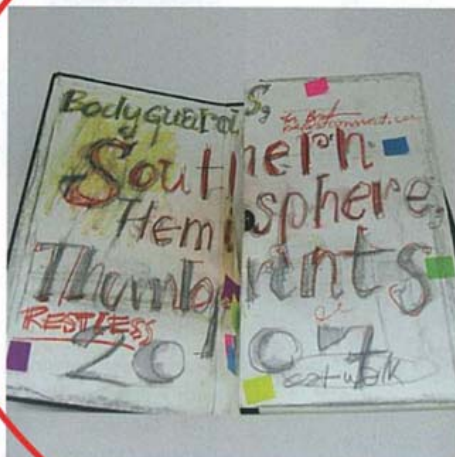 Bodyguards,
Southern
Hemisphere,
Thumbprints
RESTLESS
2007
catwalk